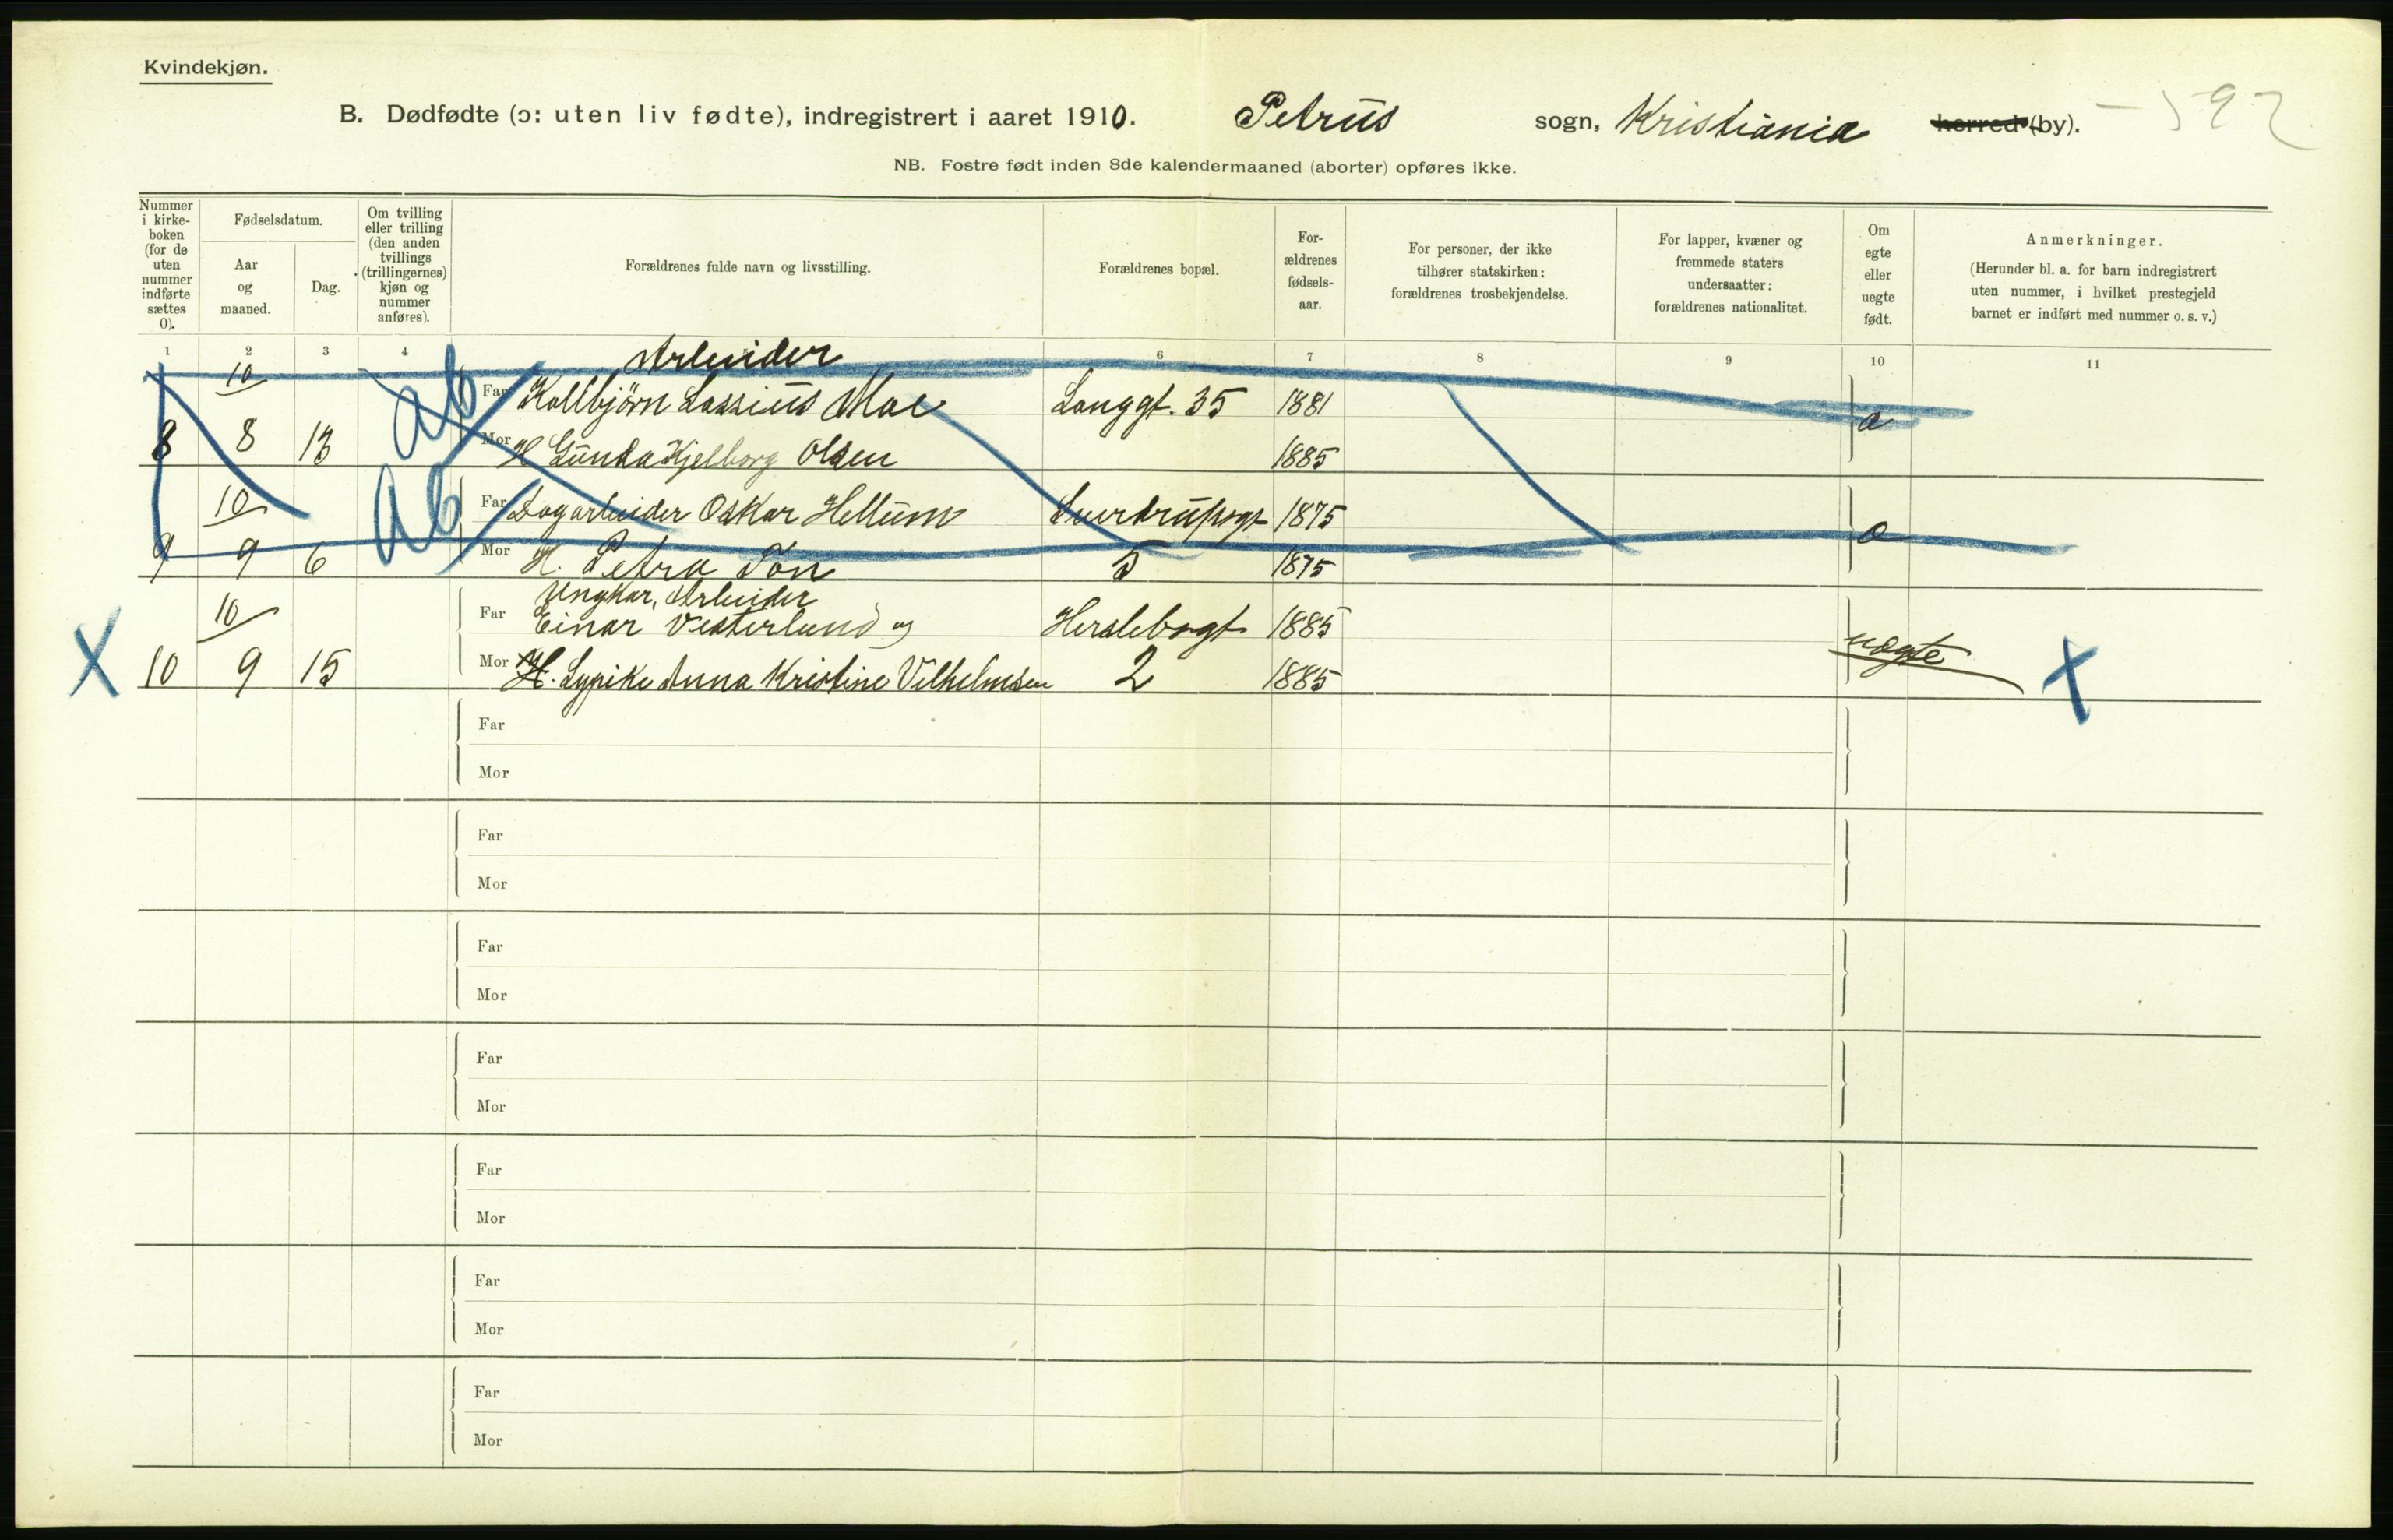 Kvindekjøn.
B. Dødfødte (ɔ: uten liv fødte), indregistrert i aaret 1910. Petrus sogn, Kristiania herred (by). 592
NB. Fostre født inden 8de kalendermaaned (aborter) opføres ikke.
Nummer i kirke-boken (for de uten nummer indførte sættes 0).
Fødselsdatum.
Aar og maaned.
Dag.
Om tvilling eller trilling (den anden tvillings (trillingernes) kjøn og nummer anføres).
Forældrenes fulde navn og livsstilling.
Forældrenes bopæl.
For-ældrenes fødsels-aar.
For personer, der ikke tilhører statskirken: forældrenes trosbekjendelse.
For lapper, kvæner og fremmede staters undersaatter: forældrenes nationalitet.
Om egte eller uegte født.
Anmerkninger.
(Herunder bl. a. for barn indregistrert uten nummer, i hvilket prestegjeld barnet er indført med nummer o. s. v.)
1 2 3 4 6 7 8 9 10 11
Arbeider
10 ab Far Kolbjörn Lassius Moe Langgt. 35 1881
8 8 13 Mor H Gunda Kjelborg Olsen 1885
10 ab Far Dagarbeider Oskar Hellum 1875
9 9 6 Mor H. Petra 5 1875
Ungkar, Arbeider
10 Far Einar Vesterlund og Herslebsgt 1885 uegte
X 10 9 15 Mor H. Sypike Anna Kristine Vilhelmsen 2 1885 X
Far
Mor
Far
Mor
Far
Mor
Far
Mor
Far
Mor
Far
Mor
Far
Mor